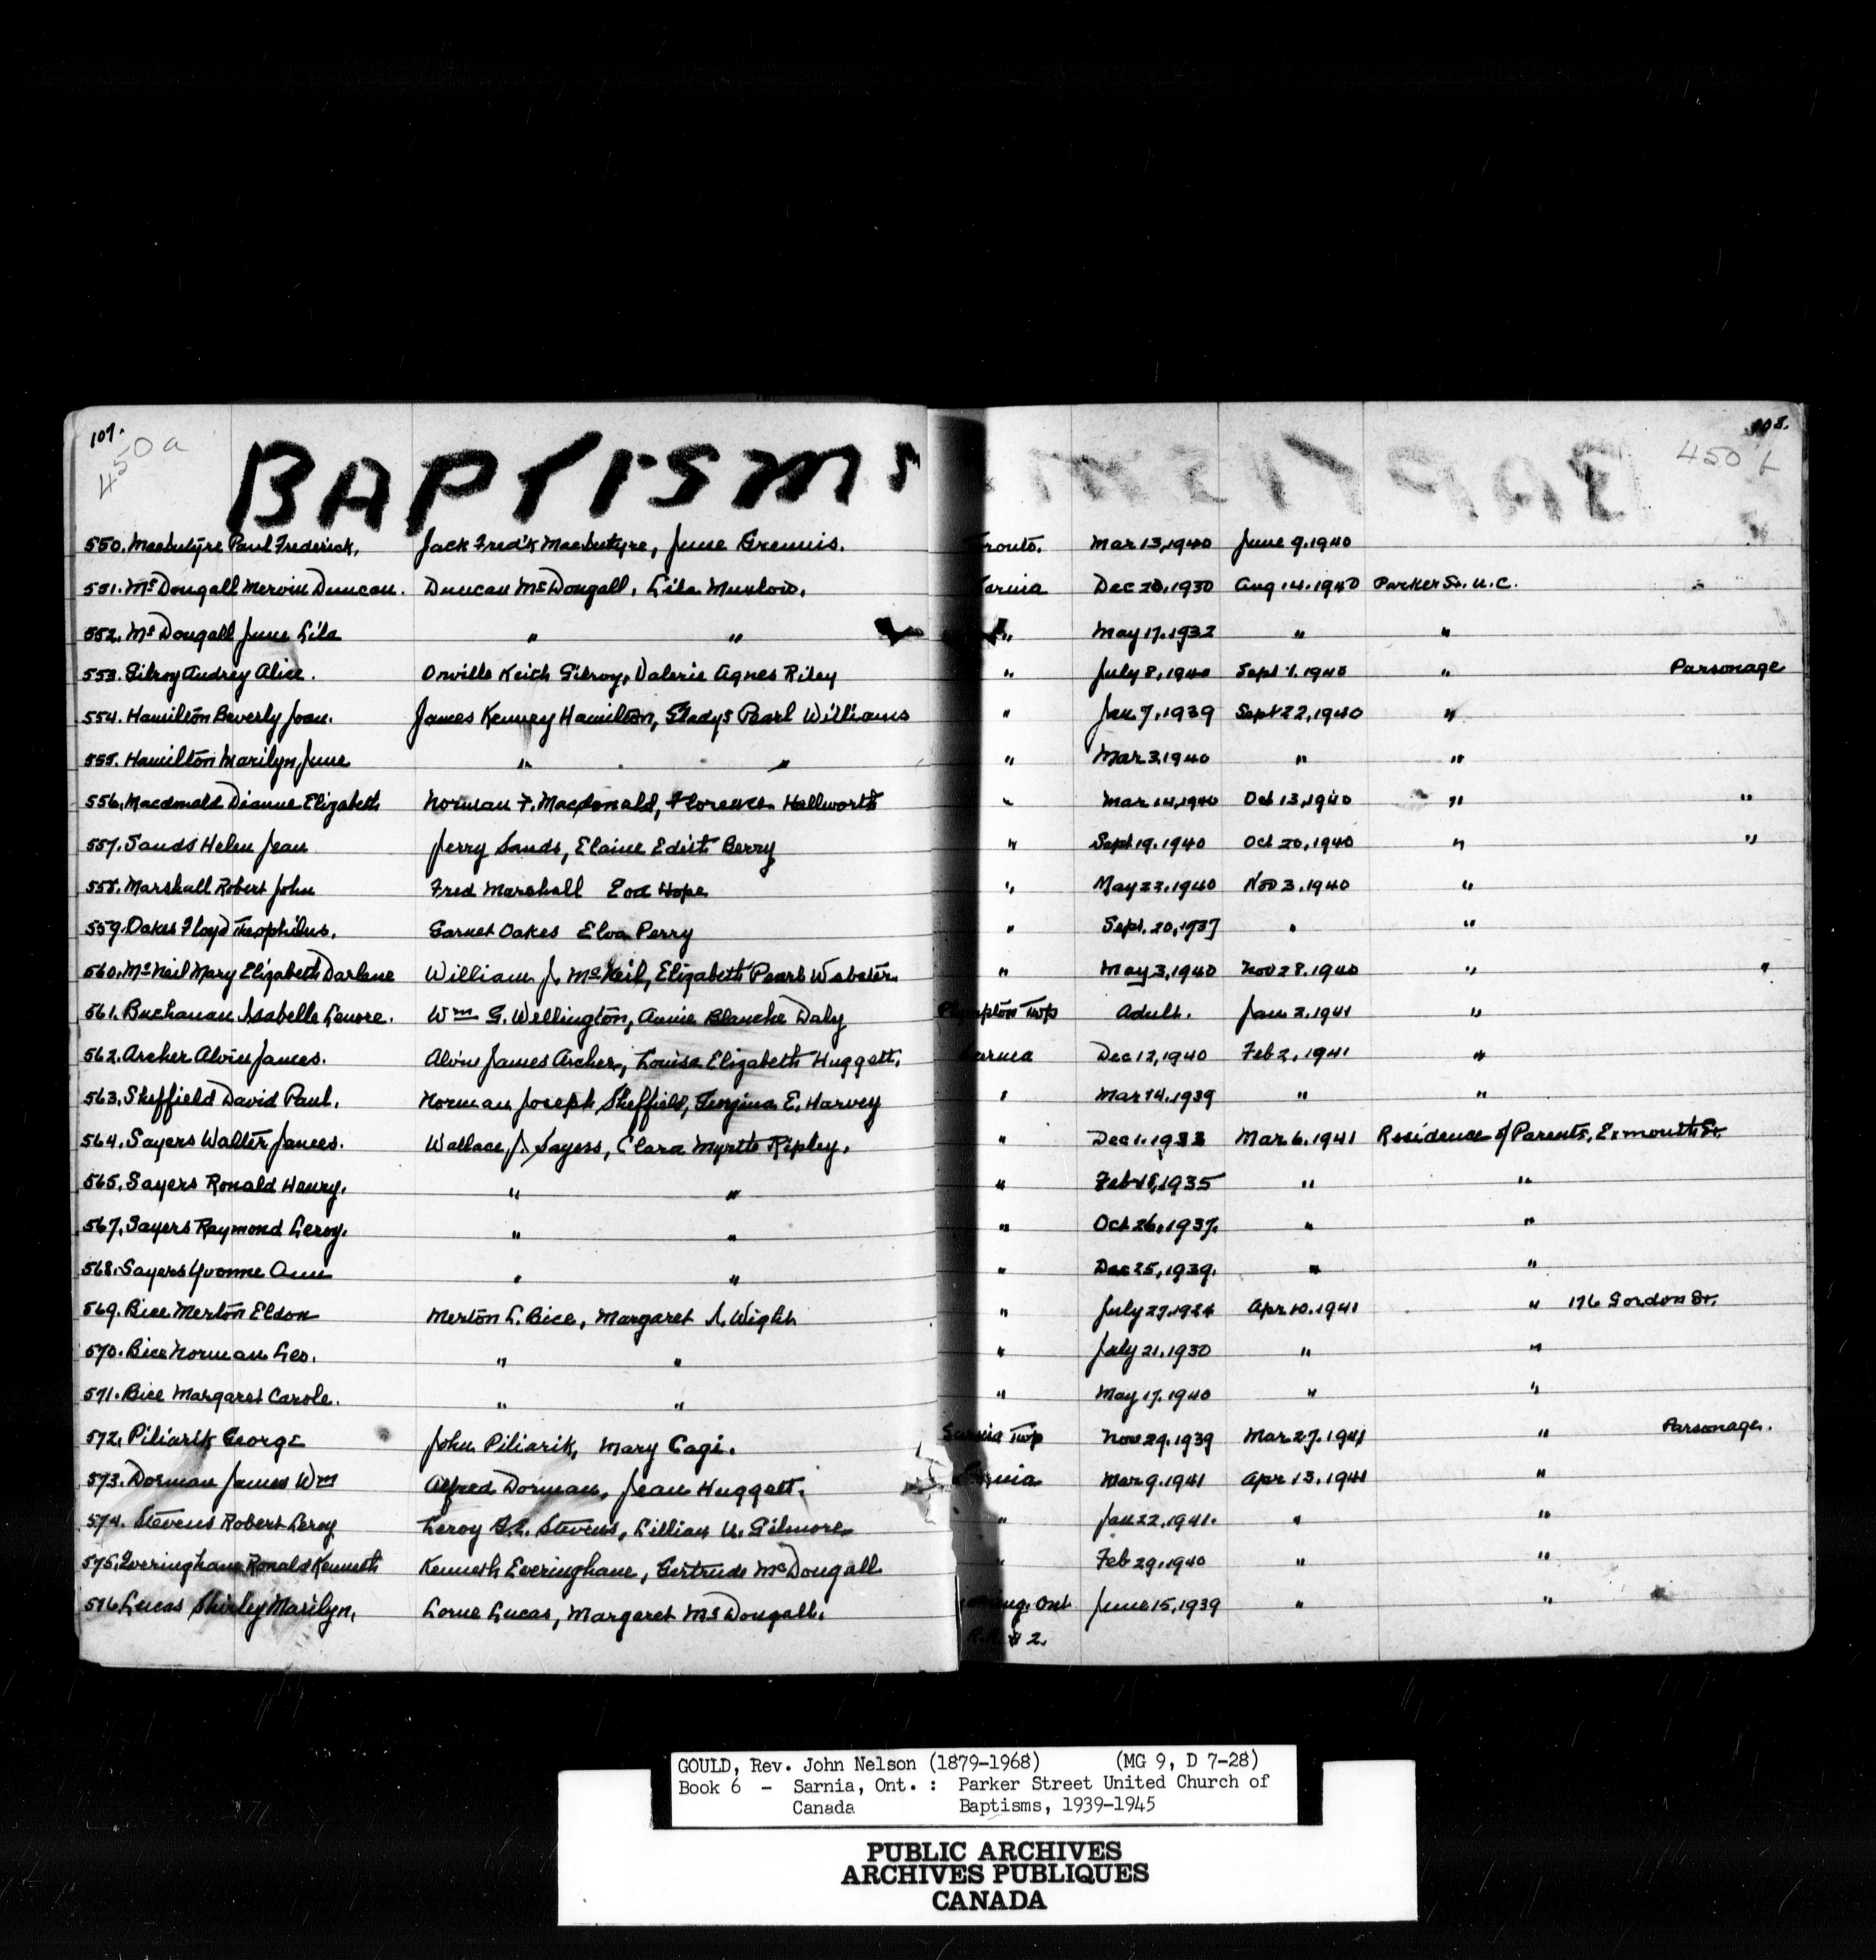 107.
450a
BAPTISMS
108.
450 b
550. MacIntyre Paul Frederick, Jack Fred'k MacIntyre, June Gremis. Toronto. Mar 13, 1940 June 9. 1940
551. McDougall Mervin Duncan. Duncan McDougall, Lila Munlow. Sarnia Dec 20, 1930 Aug 14. 1940 Parker St. U.C. "
552. McDougall June Lila " " " May 17. 1932 " "
553. Gilroy Audrey Alice. Orville Keith Gilroy, Valerie Agnes Riley " July 8, 1940 Sept 1. 1940 " Parsonage
554. Hamilton Beverly Joan. James Kenney Hamilton, Gladys Pearl Williams " Jan 7, 1939 Sept 22, 1940 "
555. Hamilton Marilyn June " " " Mar 3, 1940 " "
556. Macdonald Dianne Elizabeth Norman F. Macdonald, Florence Hallworth " Mar 14, 1940 Oct 13, 1940 " "
557. Sands Helen Jean Jerry Sands, Elaine Edith Berry " Sept 19. 1940 Oct 20, 1940 " "
558. Marshall Robert John Fred Marshall Eva Hope " May 23. 1940 Nov 3. 1940 "
559. Oakes Floyd Theophilus. Garnet Oakes Elva Perry " Sept. 20, 1937 " "
560. McNeil Mary Elizabeth Darlene William J. McNeil, Elizabeth Pearl Webster " May 3, 1940 Nov 28. 1940 " "
561. Buchanan Isabelle Lenore. Wm G. Wellington, Annie Blanche Daly Plympton Twp Adult. Jan 2. 1941 "
562. Archer Alvin James. Alvin James Archer, Louisa Elizabeth Huggett. Sarnia Dec 12, 1940 Feb 2, 1941 "
563. Sheffield David Paul. Norman Joseph Sheffield, Georgina E. Harvey " Mar 14. 1939 " "
564. Sayers Walter James. Wallace J. Sayers, Clara Myrtle Ripley. " Dec 1. 1933 Mar 6. 1941 Residence of Parents, Exmouth St.
565. Sayers Ronald Henry. " " " Feb 18, 1935 " "
567. Sayers Raymond Leroy. " " " Oct 26, 1937. " "
568. Sayers Yvonne Ann " " " Dec 25, 1939. " "
569. Bice Merton Eldon Merton L. Bice, Margaret A. Wight " July 27. 1924 Apr 10. 1941 " 176 Gordon St.
570. Bice Norman Leo. " " " July 21. 1930 " "
571. Bice Margaret Carole. " " " May 17. 1940 " "
572. Piliarik George John Piliarik, Mary Cagi. Sarnia Twp Nov 29. 1939 Mar 27. 1941 " Parsonage.
573. Dorman James Wm Alfred Dorman, Jean Huggett. Sarnia Mar 9. 1941 Apr 13. 1941 "
574. Stevens Robert Leroy Leroy Stevens, Lillian U. Gilmore " Jan 22, 1941. " "
575. Everinghane Ronald Kenneth Kenneth Everinghane, Gertrude McDougall " Feb 29. 1940 " "
576 Lucas Shirley Marilyn, Lorne Lucas, Margaret McDougall. Ont June 15, 1939 " "
R.R. # 2.
GOULD, Rev. John Nelson (1879-1968) (MG 9, D 7-28)
Book 6 - Sarnia, Ont. : Parker Street United Church of
Canada Baptisms, 1939-1945
PUBLIC ARCHIVES
ARCHIVES PUBLIQUES
CANADA